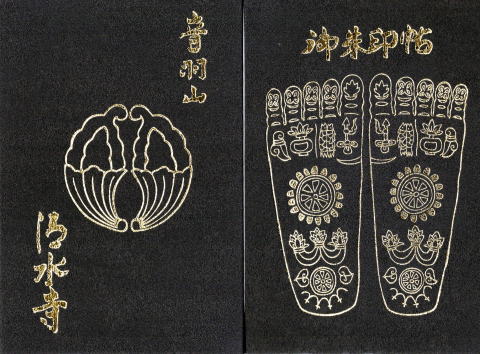 音羽山
清水寺
御朱印帖